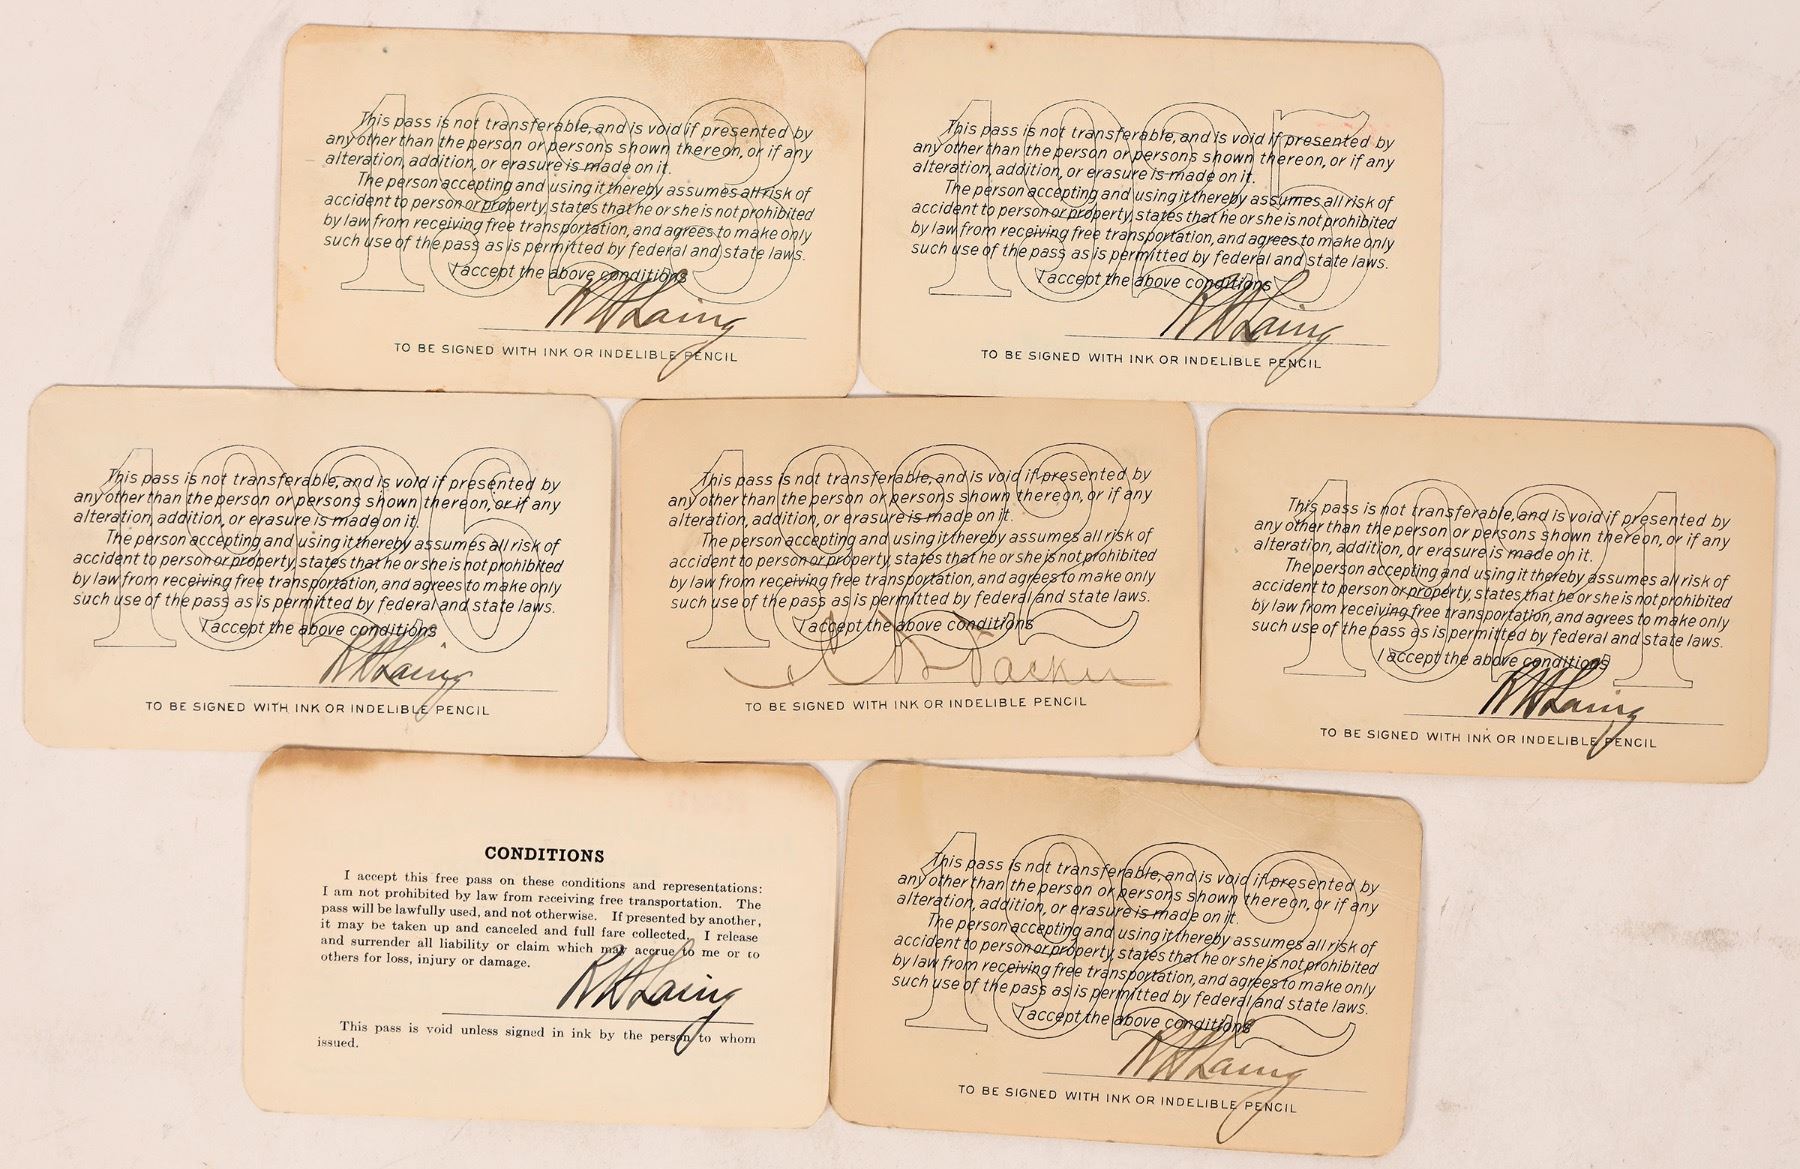 1923
This pass is not transferable, and is void if presented by
any other than the person or persons shown thereon, or if any
alteration, addition, or erasure is made on it.
The person accepting and using it thereby assumes all risk of
accident to person or property, states that he or she is not prohibited
by law from receiving free transportation, and agrees to make only
such use of the pass as is permitted by federal and state laws.
I accept the above conditions
R H Laing
TO BE SIGNED WITH INK OR INDELIBLE PENCIL
1925
This pass is not transferable, and is void if presented by
any other than the person or persons shown thereon, or if any
alteration, addition, or erasure is made on it.
The person accepting and using it thereby assumes all risk of
accident to person or property, states that he or she is not prohibited
by law from receiving free transportation, and agrees to make only
such use of the pass as is permitted by federal and state laws.
I accept the above conditions
R H Laing
TO BE SIGNED WITH INK OR INDELIBLE PENCIL
1926
This pass is not transferable, and is void if presented by
any other than the person or persons shown thereon, or if any
alteration, addition, or erasure is made on it.
The person accepting and using it thereby assumes all risk of
accident to person or property, states that he or she is not prohibited
by law from receiving free transportation, and agrees to make only
such use of the pass as is permitted by federal and state laws.
I accept the above conditions
R H Laing
TO BE SIGNED WITH INK OR INDELIBLE PENCIL
1922
This pass is not transferable, and is void if presented by
any other than the person or persons shown thereon, or if any
alteration, addition, or erasure is made on it.
The person accepting and using it thereby assumes all risk of
accident to person or property, states that he or she is not prohibited
by law from receiving free transportation, and agrees to make only
such use of the pass as is permitted by federal and state laws.
I accept the above conditions
Packer
TO BE SIGNED WITH INK OR INDELIBLE PENCIL
1921
This pass is not transferable, and is void if presented by
any other than the person or persons shown thereon, or if any
alteration, addition, or erasure is made on it.
The person accepting and using it thereby assumes all risk of
accident to person or property, states that he or she is not prohibited
by law from receiving free transportation, and agrees to make only
such use of the pass as is permitted by federal and state laws.
I accept the above conditions
R H Laing
TO BE SIGNED WITH INK OR INDELIBLE PENCIL
CONDITIONS
I accept this free pass on these conditions and representations:
I am not prohibited by law from receiving free transportation. The
pass will be lawfully used, and not otherwise. If presented by another,
it may be taken up and canceled and full fare collected. I release
and surrender all liability or claim which may accrue to me or to
others for loss, injury or damage.
R H Laing
This pass is void unless signed in ink by the person to whom
issued.
1922
This pass is not transferable, and is void if presented by
any other than the person or persons shown thereon, or if any
alteration, addition, or erasure is made on it.
The person accepting and using it thereby assumes all risk of
accident to person or property, states that he or she is not prohibited
by law from receiving free transportation, and agrees to make only
such use of the pass as is permitted by federal and state laws.
I accept the above conditions
R H Laing
TO BE SIGNED WITH INK OR INDELIBLE PENCIL